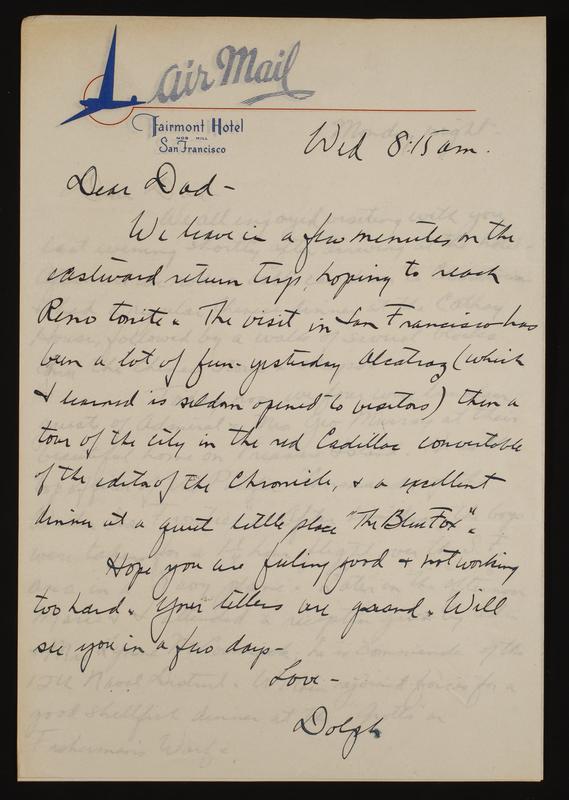 Air Mail
Fairmont Hotel
NOB HILL
San Francisco
Wed 8:15 am.
Dear Dad -
We leave in a few minutes on the
eastward return trip, hoping to reach
Reno tonite. The visit in San Francisco has
been a lot of fun - yesterday Alcatraz (which
I learned is seldom opened to visitors) then a
tour of the city in the red Cadillac convertable
of the editor of the Chronicle, & a excellent
dinner at a quiet little place "The Blue Fox".
Hope you are feeling good & not working
too hard. Your letters are grand. Will
see you in a few days -
Love -
Dolph